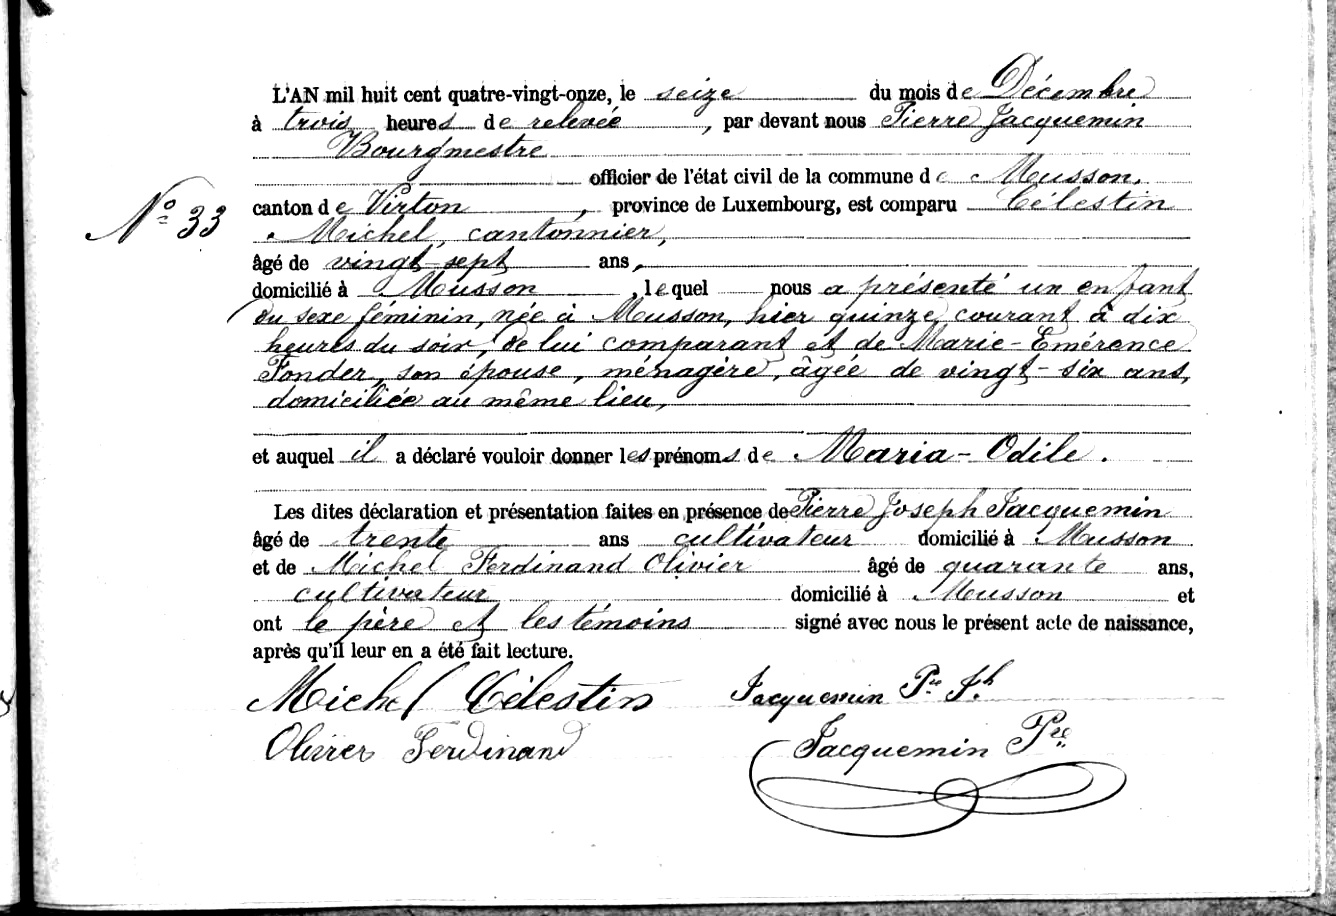 L'AN mil huit cent quatre-vingt-onze, le seize du mois de Décembre
à trois heures de relevée, par devant nous Pierre Jacquemin
Bourgmestre
officier de l'état civil de la commune de Musson,
N° 33
canton de Virton, province de Luxembourg, est comparu Célestin
Michel, cantonnier,
âgé de vingt-sept ans,
domicilié à Musson, lequel nous a présenté un enfant
du sexe féminin, née à Musson, hier quinze courant à dix
heures du soir, de lui comparant et de Marie-Emérence
Fonder, son épouse, ménagère, âgée de vingt-six ans,
domiciliée au même lieu,
et auquel il a déclaré vouloir donner les prénoms de Maria-Odile.
Les dites déclaration et présentation faites en présence de Pierre Joseph Jacquemin
âgé de trente ans cultivateur domicilié à Musson
et de Michel Ferdinand Olivier âgé de quarante ans,
cultivateur domicilié à Musson et
ont le père et les témoins signé avec nous le présent acte de naissance,
après qu'il leur en a été fait lecture.
Michel Célestin Jacquemin Pre Jh
Olivier Ferdinand Jacquemin Pre